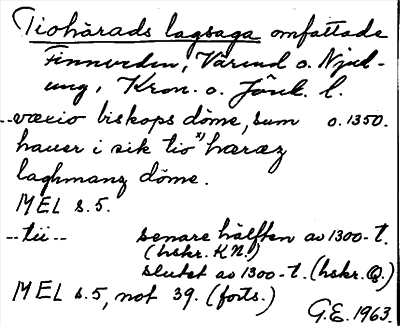 Tiohärads lagsaga omfattade
Finnveden, Värend o. Njud-
ung, Kron. o. Jönk. l.
--væxio biskops döme, sum o. 1350.
hauer i sik tio x) hæræz
laghmanz döme.
MEL s. 5.
--tii-- senare hälften av 1300-t.
(hskr. K N!)
slutet av 1300-t. (hskr. Q.)
MEL s. 5, not 39. (forts.)
G.E. 1963.